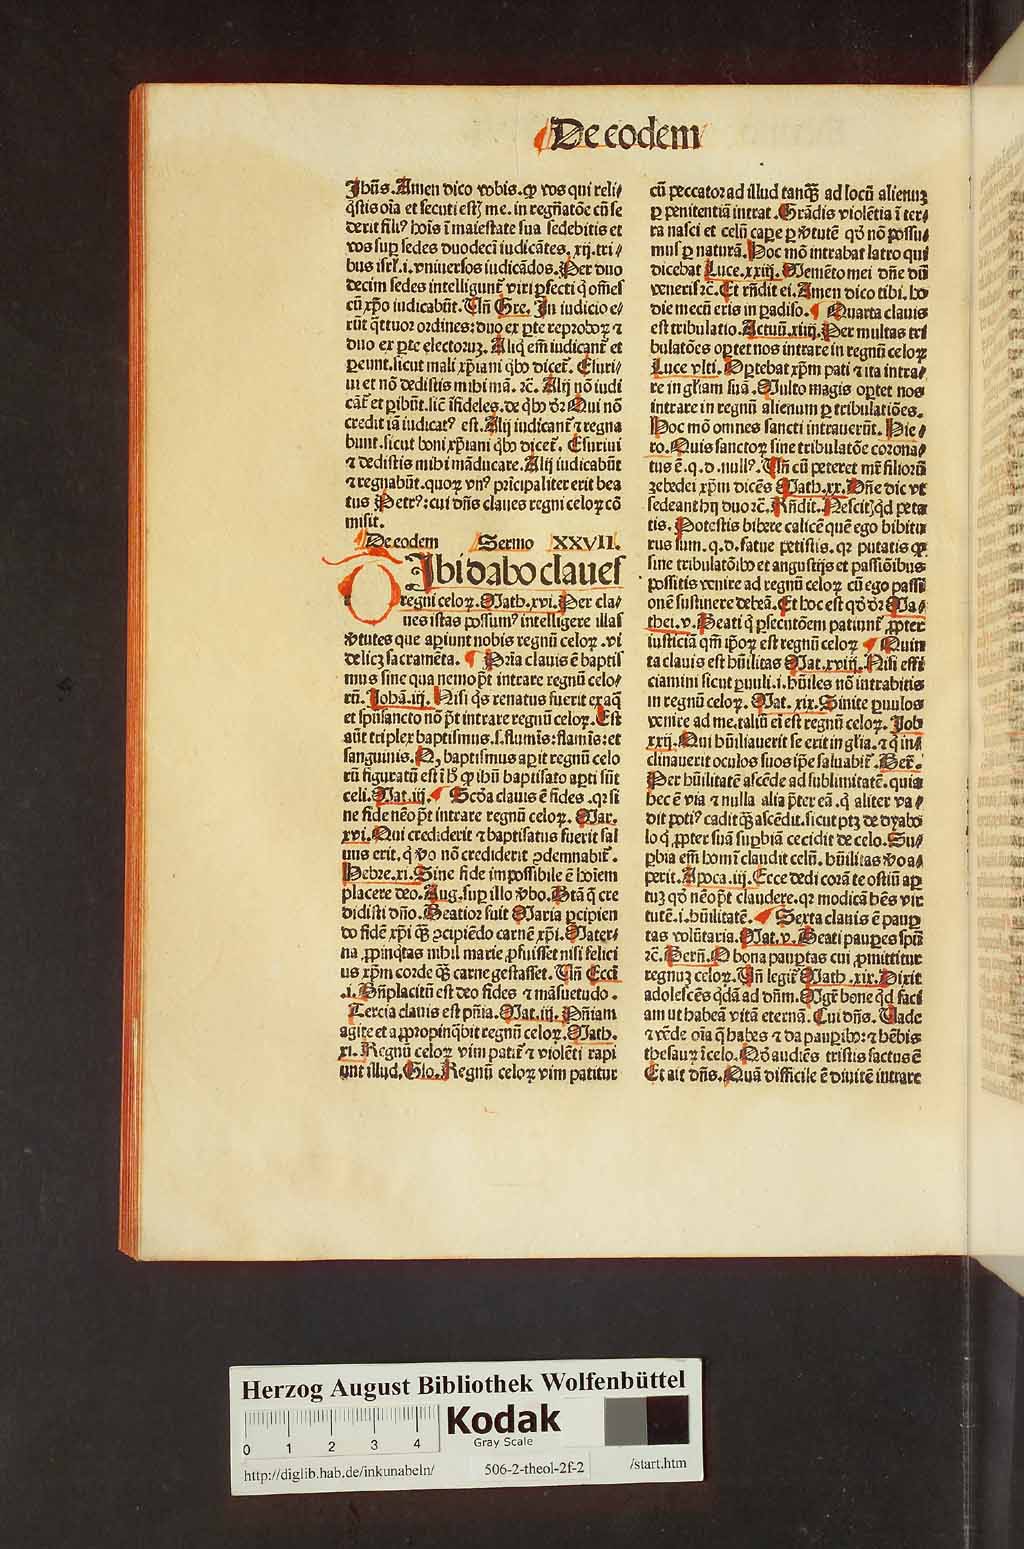 De eodem
Ihūs. Amen dico vobis. ꝙ vos qui reli⸗
q̄stis oīa et secuti estꝭ me. in regn̄atōe cū se
derit filiꝰ hoīs ī maiestate sua sedebitis et
vos suꝑ sedes duodecī iudicātes. xij. tri⸗
bus isrl̄. i. vniuersos iudicādos. Per duo
decim sedes intelligunt̄ viri ꝑfecti q̇ om̄es
cū xp̄o iudicabūt. Uñ Gre. In iudicio e⸗
rūt q̄ttuor ordines: duo ex ꝑte reproboꝝ ⁊
duo ex ꝑte electoruꝫ. Aliq̇ em̄ iudicant̄ et
ꝑeunt. sicut mali xp̄iani qḃꝰ dicet̄. Esuri⸗
ui et nō dedistis mihi mā. ⁊c̄. Alij nō iudi
cāt̄ et ꝑibūt. sic̄ īfideles. de qḃꝰ dr̄ Qui nō
credit iā iudicatꝰ est. Alij iudicant̄ ⁊ regna
bunt. sicut boni xp̄iani qḃꝰ dicet̄. Esuriui
⁊ dedistis mihi māducare. Alij iudicabūt
⁊ regnabūt. quoꝝ vnꝰ prīcipaliter erit bea
tus Petrꝰ: cui dn̄s claues regni celoꝝ cō
misit.
De eodem Sermo XXVII.
Ibi dabo claues
regni celoꝝ. Math. xvi. Per cla⸗
ues istas possumꝰ intelligere illas
v̄tutes que aꝑiunt nobis regnū celoꝝ. vi
delicꝫ sacramēta. ¶ Prīa clauis ē baptis
mus sine qua nemo pt̄ intrare regnū celo⸗
rū. Johā. iij. Nisi q̇s renatus fuerit ex aq̄
et spūsancto nō pt̄ intrare regnū celoꝝ. Est
aūt triplex baptismus. s. flumīs: flamīs: et
sanguinis. Ꝙ baptismus aꝑit regnū celo
rū figuratū est ī hͦ ꝙ ihū baptisato aꝑti sūt
celi. Mat. iij. ¶ Scd̄a clauis ē fides. qꝛ si
ne fide nēo pt̄ intrare regnū celoꝝ. Mar.
xvi. Qui crediderit ⁊ baptisatus fuerit sal
uus erit. q̇ v̇o nō crediderit ꝯdemnabit̄.
Hebre. xi. Sine fide impossibile ē hoīem
placere deo. Aug. suꝑ illo v̇bo. Btā q̄ cre
didisti dn̄o. Beatior fuit Maria ꝑcipien
do fidē xp̄i q̄ꝫ ꝯcipiēdo carnē xp̄i. Mater⸗
na ꝓpinq̄tas nihil marie ꝓfuisset nisi felici
us xp̄m corde q̄ꝫ carne gestasset. Uñ Ecci.
.i. Bn̄placitū est deo fides ⁊ māsuetudo.
Tercia clauis est pn̄ia. Mat. iij. Pn̄iam
agite et aꝓpropinq̄bit regnū celoꝝ. Math.
xi. Regnū celoꝝ vim patit̄ ⁊ violēti rapi
unt illud. Glo. Regnū celoꝝ vim patitur
cū peccator ad illud tanq̄ꝫ ad locū alienuꝫ
ꝑ penitentiā intrat. Grādis violētia ī ter⸗
ra nasci et celū caꝑe ꝑ v̄tutē qd̄ nō possu⸗
mus ꝑ naturā. Hoc mō intrabat latro qui
dicebat Luce. xxiij. Memēto mei dn̄e dū
veneris ⁊c̄. Et rn̄dit ei. Amen dico tibi. ho
die mecū eris in ꝑadiso. ¶ Quarta clauis
est tribulatio. Actuū. xiiij. Per multas tri
bulatōes oꝑtet nos intrare in regnū celoꝝ
Luce vlti. Oꝑtebat xp̄m pati ⁊ ita intra⸗
re in gl̄iam suā. Multo magis oꝑtet nos
intrare in regnū alienum ꝑ tribulatiōes.
Hoc mō omnes sancti intrauerūt. Hie⸗
ro. Quis sanctoꝝ sine tribulatōe corona⸗
tus ē. q. d. nullꝰ. Uñ cū peteret mr̄ filiorū
zebedei xp̄m dicēs Math. xx. Dn̄e dic vt
sedeant hij duo ⁊c̄. Rn̄dit. Nescitꝭ qd̄ peta
tis. Potestis bibere calicē quē ego bibitu
rus sum. q. d. fatue petistis. qꝛ putatis ꝙ
sine tribulatōibꝰ et angustijs et passiōibus
possitis venire ad regnū celoꝝ. cū ego passi
onē sustinere debeā. Et hoc est qd̄ dr̄ Ma⸗
thei. v. Beati q̇ ꝑsecutōem patiunt̄ ꝓpter
iusticiā qm̄ ip̄oꝝ est regnū celoꝝ ¶ Quin
ta clauis est hūilitas Mat. xviij. Nisi effi
ciamini sicut ꝑuuli. i. hūiles nō intrabitis
in regnū celoꝝ. Mat. xix. Sinite ꝑuulos
venire ad me. taliū ei est regnū celoꝝ. Job
xxij. Qui hūiliauerit se erit in gl̄ia. ⁊ q̇ in⸗
clinauerit oculos suos ip̄e saluabit̄. Ber̄.
Per hūilitatē ascēde ad sublimitatē. quia
hec ē via ⁊ nulla alia p̄ter eā. q̇ aliter va⸗
dit potiꝰ cadit q̄ꝫ ascēdit. sicut ptꝫ de dyabo
lo q̇ ꝓpter suā suꝑbiā cecidit de celo. Su⸗
ꝑbia em̄ homī claudit celū. hūilitas v̇o a⸗
ꝑerit. Apoca. iij. Ecce dedi corā te ostiū aꝑ
tuꝫ qd̄ nēo pt̄ claudere. qꝛ modicā hēs vir
tutē. i. hūilitatē. ¶ Sexta clauis ē pauꝑ
tas volūtaria. Mat. v. Beati pauꝑes spū
⁊c̄. Bern̄. O bona pauꝑtas cui ꝓmittitur
regnuꝫ celoꝝ. Uñ legit̄ Math. xix. Dixit
adolescēs qdā ad dn̄m. Mgr̄ bone qd̄ faci
am vt habeā vitā eternā. Cui dn̄s. Uade
⁊ vēde oīa q̄ habes ⁊ da pauꝑibꝰ: ⁊ hēbis
thesauꝝ ī celo. Quo audiēs tristis factus ē
Et ait dn̄s. Quā difficile ē diuitē intrare
Herzog August Bibliothek Wolfenbüttel
0 1 2 3 4
Kodak
Gray Scale
http://diglib.hab.de/inkunabeln/ 506-2-theol-2f-2 /start.htm